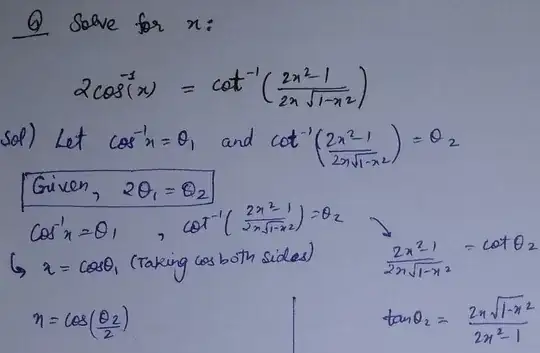 Q Solve for x:
2cos⁻¹(x) = cot⁻¹((2x²-1)/(2x√(1-x²)))
Sol) Let cos⁻¹x = θ₁ and cot⁻¹((2x²-1)/(2x√(1-x²))) = θ₂
Given, 2θ₁ = θ₂
cos⁻¹x = θ₁ , cot⁻¹((2x²-1)/(2x√(1-x²))) = θ₂
↳ x = cosθ₁ (Taking cos both sides)
(2x²-1)/(2x√(1-x²)) = cotθ₂
x = cos(θ₂/2)
tanθ₂ = (2x√(1-x²))/(2x²-1)